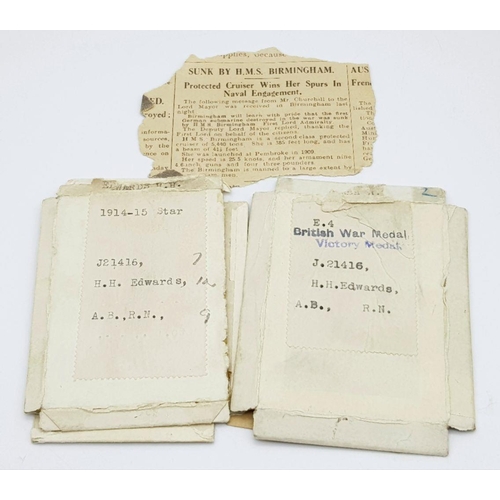 applies, because
SUNK BY H.M.S. BIRMINGHAM.
Protected Cruiser Wins Her Spurs In
Naval Engagement.
The following message from Mr Churchill to the
Lord Mayor was received in Birmingham last
night
Birmingham will learn with pride that the first
German submarine destroyed in the war was sunk
by H.M.S. Birmingham. First Lord Admiralty
The Deputy Lord Mayor replied, thanking the
First Lord on behalf of the citizens.
H.M.S. Birmingham is a second-class protected
cruiser of 5,440 tons. She is
feet long, and has a
beam of
feet.
She was launched at Pembroke in
Her speed is 25.5 knots, and her armament nine
guns and four three pounders.
The Birmingham is manned to a large extent by
ED.
oyed:
informa
sources,
by the
AUS
Fren
1914-15 Star
J21416, 7
H.H. Edwards, 12
A.B.,R.N., 9
2
E.4
British War Medal
Victory Medal
J.21416,
H.H.Edwards,
A.B., R.N.